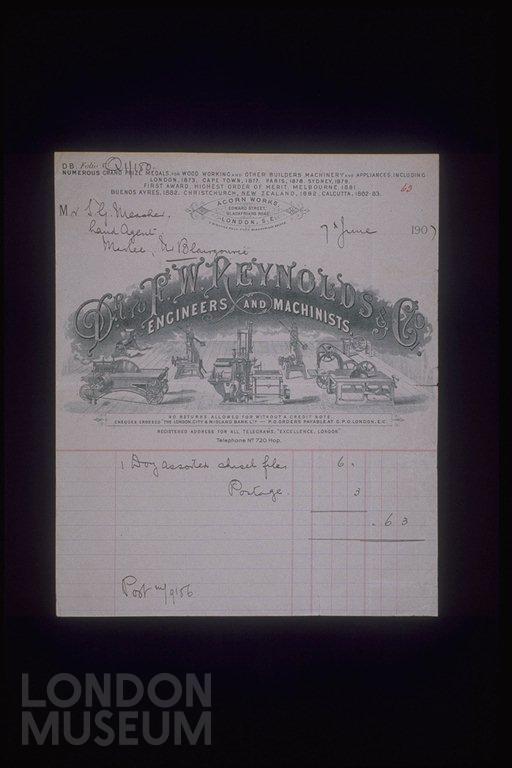 D.B. Folio
NUMEROUS GRAND PRIZE MEDALS, FOR WOOD WORKING AND OTHER BUILDERS MACHINERY AND APPLIANCES, INCLUDING
LONDON, 1873, CAPE TOWN, 1877. PARIS, 1878. SYDNEY, 1879.
FIRST AWARD, HIGHEST ORDER OF MERIT, MELBOURNE 1881
BUENOS AYRES, 1882. CHRISTCHURCH, NEW ZEALAND, 1882. CALCUTTA, 1882-83.
63
ACORN WORKS,
EDWARD STREET,
BLACKFRIARS ROAD,
LONDON, S.E.
Mr
Land Agent
Blairgowrie
7th June 1907
Dr. to F. W. REYNOLDS & Co.
ENGINEERS AND MACHINISTS,
NO RETURNS ALLOWED FOR WITHOUT A CREDIT NOTE.
CHEQUES CROSSED "THE LONDON, CITY & MIDLAND BANK, LTD — P.O. ORDERS PAYABLE AT G.P.O. LONDON, E.C.
REGISTERED ADDRESS FOR ALL TELEGRAMS, "EXCELLENCE, LONDON"
Telephone No 720 Hop.
1 Doz assorted chisel files 6 "
Postage. 3
. 6 3
Post
LONDON
MUSEUM